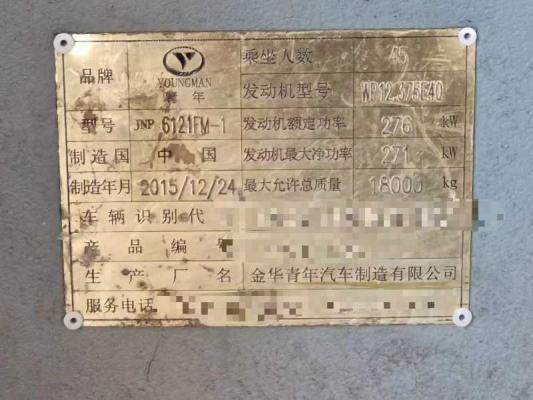 品牌 YOUNGMAN 青年 乘坐人数 45
发动机型号 WP12.375E40
型号 JNP 6121FM-1 发动机额定功率 276 kW
制造国 中国 发动机最大净功率 271 kW
制造年月 2015/12/24 最大允许总质量 18000 kg
车辆识别代
产品编号
生产厂名 金华青年汽车制造有限公司
服务电话